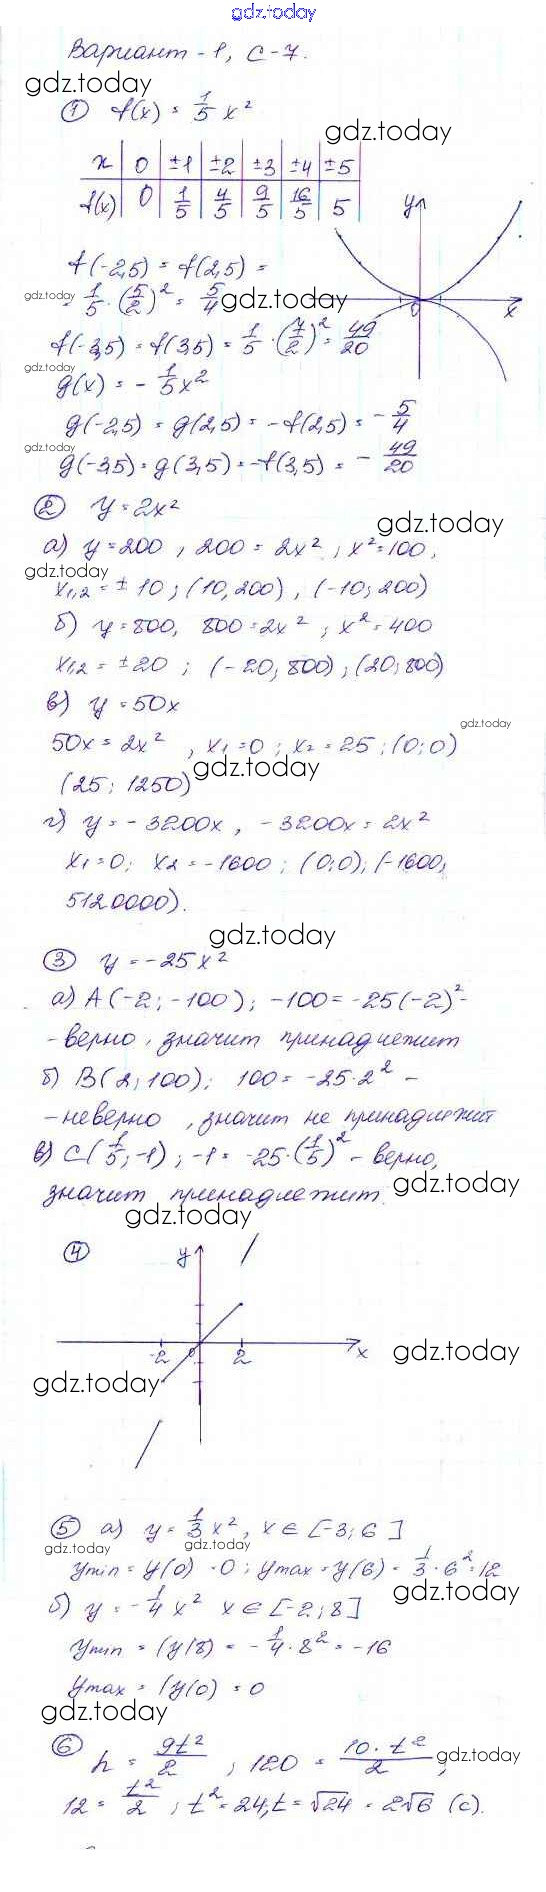 gdz.today
Вариант-1, С-7.
gdz.today
① f(x) = 1/5 x²
gdz.today
x | 0 | ±1 | ±2 | ±3 | ±4 | ±5
f(x) | 0 | 1/5 | 4/5 | 9/5 | 16/5 | 5
y
0
x
f(-2,5) = f(2,5) =
gdz.today
= 1/5 · (5/2)² = 5/4
gdz.today
f(-3,5) = f(3,5) = 1/5 · (7/2)² = 49/20
gdz.today
g(x) = - 1/5 x²
g(-2,5) = g(2,5) = -f(2,5) = - 5/4
gdz.today
g(-3,5) = g(3,5) = -f(3,5) = - 49/20
② y = 2x²
gdz.today
а) y = 200, 200 = 2x²; x² = 100,
gdz.today
x₁,₂ = ± 10; (10, 200), (-10; 200)
б) y = 800, 800 = 2x²; x² = 400
x₁,₂ = ±20; (-20; 800); (20; 800)
в) y = 50x
gdz.today
50x = 2x², x₁ = 0; x₂ = 25; (0; 0)
gdz.today
(25; 1250)
г) y = -3200x, -3200x = 2x²
x₁ = 0; x₂ = -1600; (0; 0); (-1600;
5120000).
gdz.today
③ y = -25x²
а) A(-2; -100); -100 = -25(-2)² -
- верно, значит принадлежит
б) B(2; 100); 100 = -25·2² -
- неверно, значит не принадлежит
в) C(1/5; -1); -1 = -25·(1/5)² - верно,
gdz.today
значит принадлежит.
gdz.today
④
y
-2
0
2
x
gdz.today
gdz.today
⑤ а) y = 1/3 x², x ∈ [-3; 6]
gdz.today
gdz.today
ymin = y(0) = 0; ymax = y(6) = 1/3 · 6² = 12
gdz.today
б) y = - 1/4 x² x ∈ [-2; 8]
ymin = (y(8) = - 1/4 · 8² = -16
ymax = (y(0) = 0
gdz.today
⑥ h = gt²/2; 120 = 10·t²/2;
gdz.today
12 = t²/2; t² = 24, t = √24 = 2√6 (c).